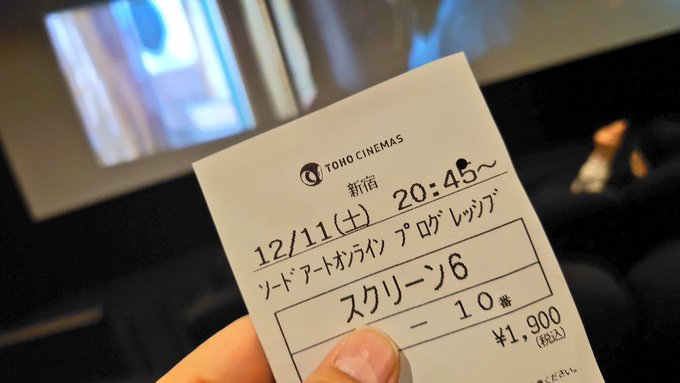 TOHO CINEMAS
新宿
12/11(土) 20:45～
ソードアートオンライン プログレッシブ
スクリーン6
－ 10番
¥1,900
(税込)
ください。